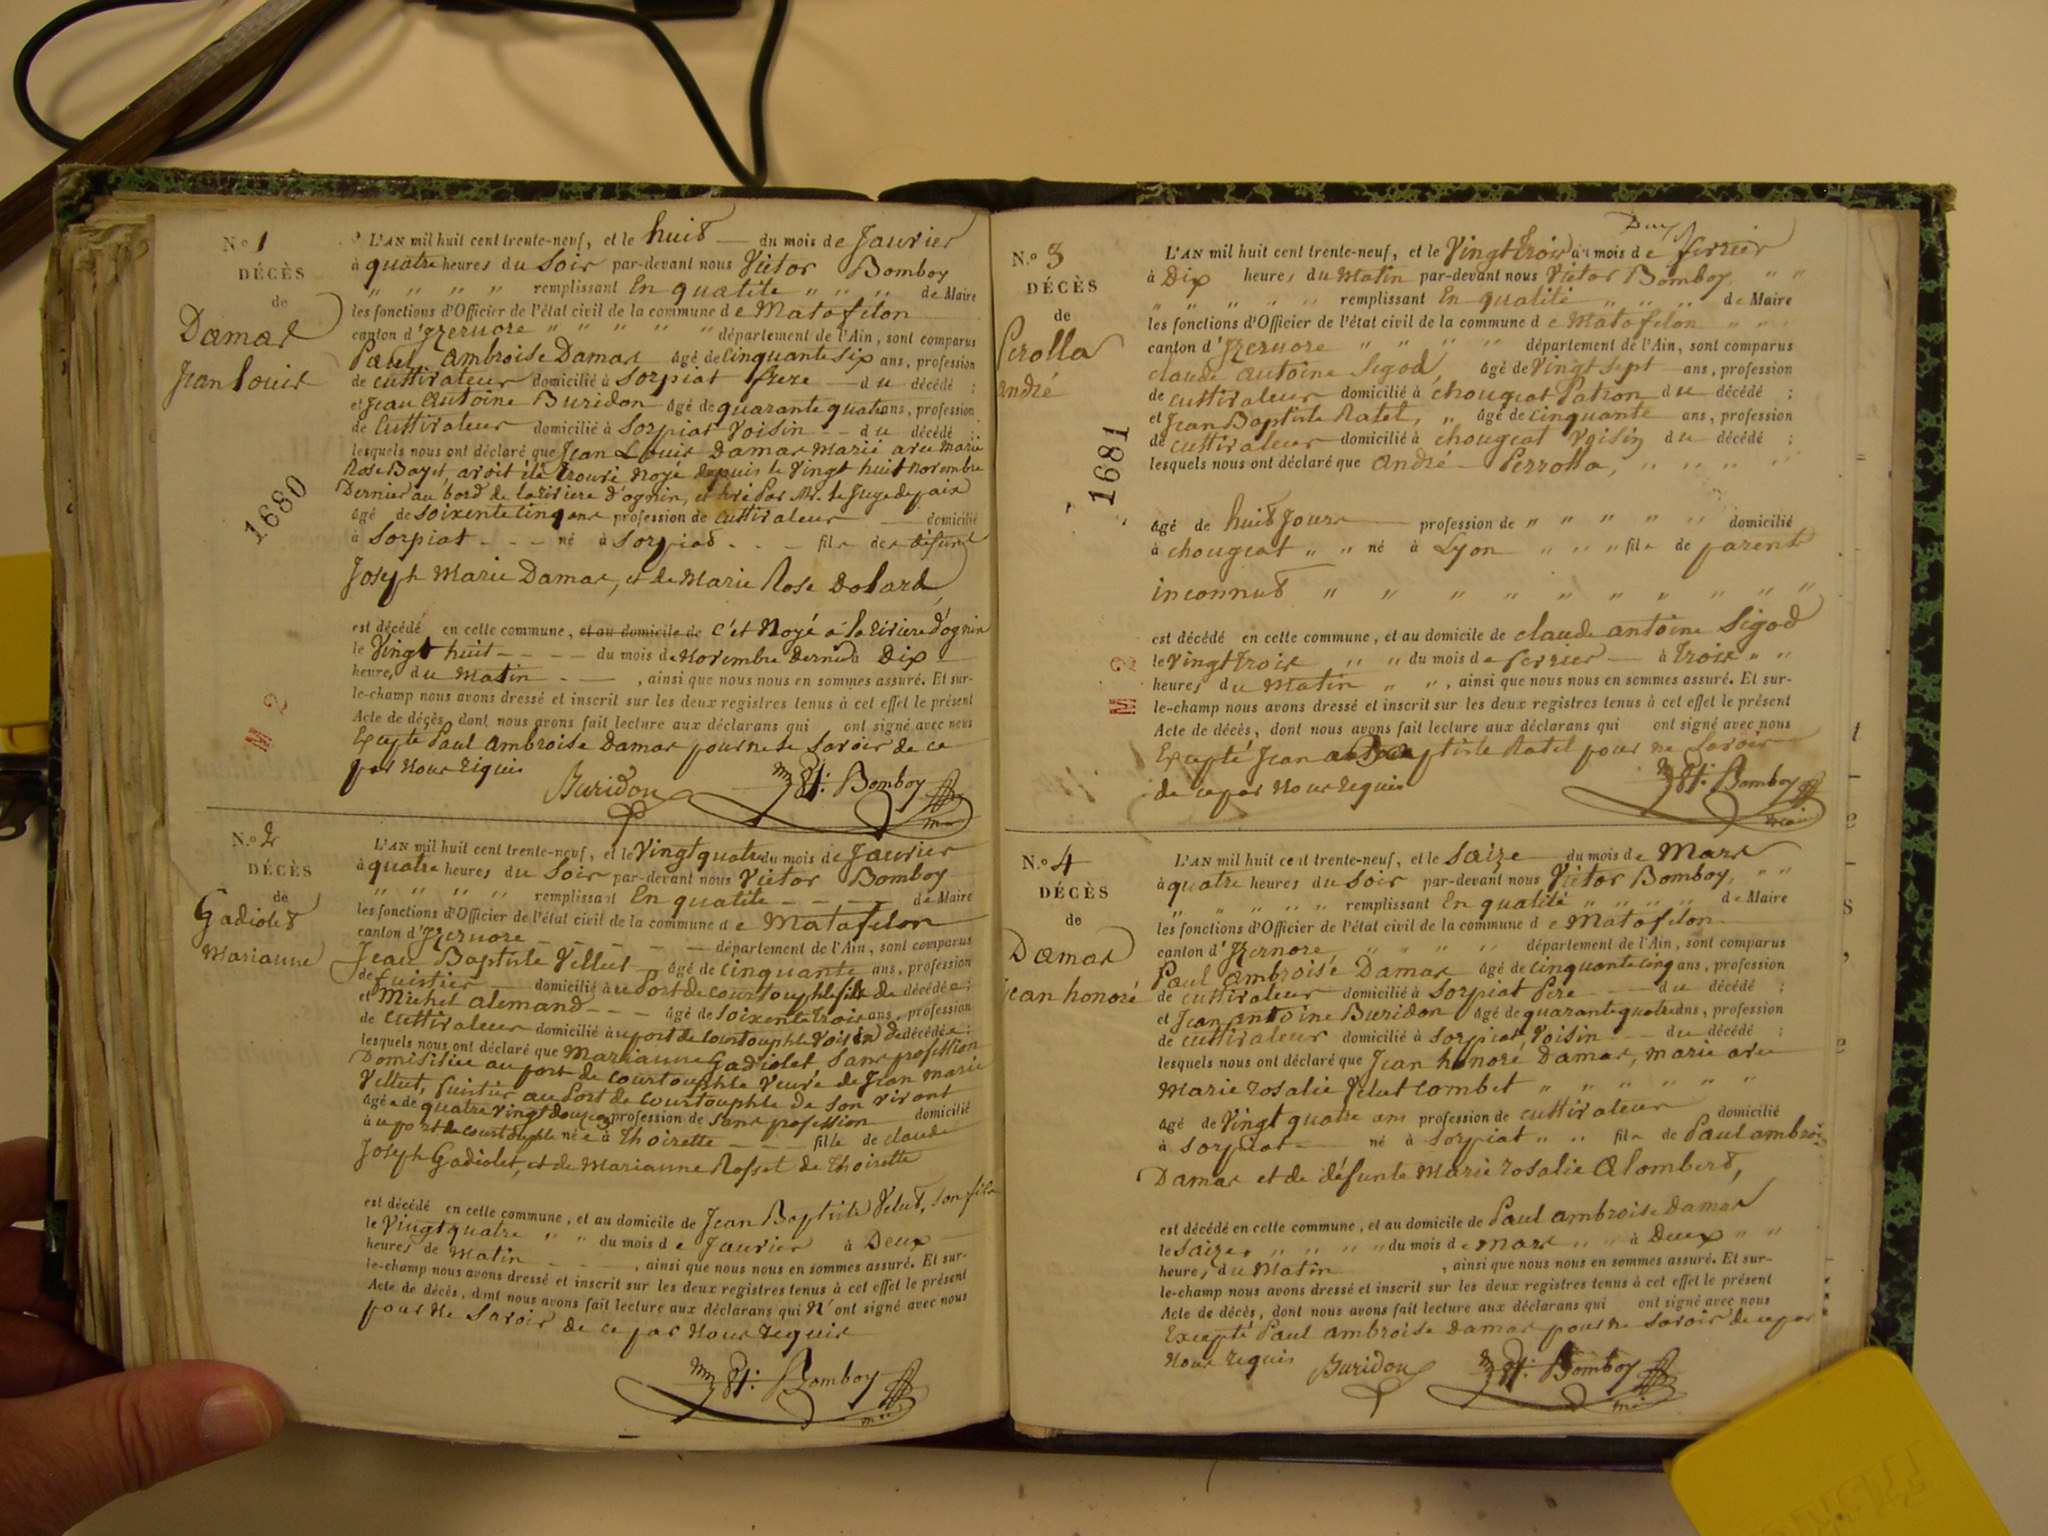 N.o 1
DÉCÈS
de
Damas
Jean Louis
1680
L'AN mil huit cent trente-neuf, et le huit du mois de Janvier
à quatre heures du Soir par-devant nous Victor Bomboy
" " " " remplissant En qualité " " " de Maire
les fonctions d'Officier de l'état civil de la commune de Matafelon
canton d'Izernore " " " " " département de l'Ain, sont comparus
Paul Ambroise Damas âgé de cinquante six ans, profession
de cultivateur domicilié à Sorpiat frere du décédé ;
et Jean Antoine Buridon âgé de quarante quatre ans, profession
de Cultivateur domicilié à Sorpiat Voisin du décédé ;
lesquels nous ont déclaré que Jean Louis Damas Marié avec Marie
Rose Bayet, avoit été trouvé Noyé depuis le Vingt huit Novembre
Dernier au bord de la riviere d'ognin, et livré Par Mr. le Juge de paix
âgé de Soixente cinq ans profession de cultivateur domicilié
à Sorpiat - - - né à Sorpiat - - - fils de défunt
Joseph Marie Damas, et de Marie Rose Dolard,
est décédé en cette commune, et au domicile de c'et Noyé à la riviere d'ognin
le Vingt huit - - - - du mois de Novembre Dernier à Dix
heures du Matin - - , ainsi que nous nous en sommes assuré. Et sur-
le-champ nous avons dressé et inscrit sur les deux registres tenus à cet effet le présent
Acte de décès, dont nous avons fait lecture aux déclarans qui ont signé avec nous
Excepté Paul Ambroise Damas pour ne le Savoir de ce
par Nous requis
Buridon Bomboy
M 2
N.o 2
DÉCÈS
de
Gadiolet
Marianne
L'AN mil huit cent trente-neuf, et le Vingt quatre du mois de Janvier
à quatre heures du Soir par-devant nous Victor Bomboy
" " " " remplissant En qualité - - - de Maire
les fonctions d'Officier de l'état civil de la commune de Matafelon
canton d'Izernore - - - - - département de l'Ain, sont comparus
Jean Baptiste Vellut âgé de cinquante ans, profession
de fuistier domicilié à u Port de Courtouphle fils de décédée ;
et Michel Alemand - - - âgé de Soixente trois ans, profession
de Cultivateur domicilié à u port de Courtouphle Voisin de décédée ;
lesquels nous ont déclaré que Marianne Gadiolet Sans profession
Domisiliée au port de Courtouphle Veuve de Jean Marie
Vellut, fuistier au Port de Courtouphle de Son vivant
âgée de quatre Vingt douze profession de Sans profession domicilié
à u port de Courtouphle née à Thoirette - - fille de Claude
Joseph Gadiolet, et de Marianne Rosset de Thoirette
est décédé en cette commune, et au domicile de Jean Baptiste Velut, Son fils
le Vingt quatre " " du mois de Janvier à Deux
heures de Matin - - - , ainsi que nous nous en sommes assuré. Et sur-
le-champ nous avons dressé et inscrit sur les deux registres tenus à cet effet le présent
Acte de décès, dont nous avons fait lecture aux déclarans qui n'ont signé avec nous
pour ne Savoir de ce par Nous requis
Bomboy
N.o 3
DÉCÈS
de
Perolla
André
1681
L'AN mil huit cent trente-neuf, et le Vingt trois du mois de fevrier
à Dix heures du Matin par-devant nous Victor Bomboy " "
" " " " " " remplissant En qualité " " " de Maire
les fonctions d'Officier de l'état civil de la commune de Matafelon " "
canton d'Izernore " " " " département de l'Ain, sont comparus
Claude Antoine Sigod, âgé de Vingt Sept ans, profession
de cultivateur domicilié à Chougeat Patron du décédé ;
et Jean Baptiste Ratel, " âgé de cinquante ans, profession
de cultivateur domicilié à Chougeat Voisin du décédé ;
lesquels nous ont déclaré que André Perrolla, " " " "
âgé de huit Jours profession de " " " " " domicilié
à Chougeat " " né à Lyon " " " fils de parent
inconnut " " " " " " " " " "
est décédé en cette commune, et au domicile de Claude Antoine Sigod
le Vingt trois " " du mois de fevrier à Trois " "
heures du Matin " " , ainsi que nous nous en sommes assuré. Et sur-
le-champ nous avons dressé et inscrit sur les deux registres tenus à cet effet le présent
Acte de décès, dont nous avons fait lecture aux déclarans qui ont signé avec nous
Excepté Jean Baptiste Ratel pour ne Savoir
de ce par Nous requis
Bomboy
M 2
N.o 4
DÉCÈS
de
Damas
Jean honoré
L'AN mil huit cent trente-neuf, et le Saize du mois de Mars
à quatre heures du Soir par-devant nous Victor Bomboy, " "
" " " " " remplissant En qualité " " " " de Maire
les fonctions d'Officier de l'état civil de la commune de Matafelon
canton d'Izernore, " " " " département de l'Ain, sont comparus
Paul Ambroise Damas âgé de cinquante cinq ans, profession
de cultivateur domicilié à Sorpiat Pere du décédé ;
et Jean Antoine Buridon âgé de quarante quatre ans, profession
de cultivateur domicilié à Sorpiat, Voisin du décédé ;
lesquels nous ont déclaré que Jean honoré Damas, marié avec
Marie rosalie Velut Combet " " " " " "
âgé de Vingt quatre ans profession de cultivateur domicilié
à Sorpiat né à Sorpiat " " fils de Paul ambroi
Damas et de défunte Marie rosalie Alombert,
est décédé en cette commune, et au domicile de Paul ambroise Damas
le Saize " " " " du mois de Mars " " à Deux " "
heures du Matin , ainsi que nous nous en sommes assuré. Et sur-
le-champ nous avons dressé et inscrit sur les deux registres tenus à cet effet le présent
Acte de décès, dont nous avons fait lecture aux déclarans qui ont signé avec nous
Excepté Paul ambroise Damas pour ne Savoir de ce par
Nous requis Buridon Bomboy